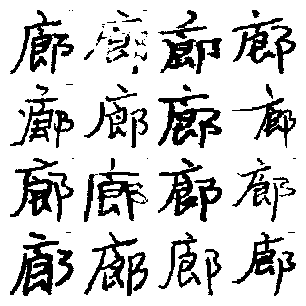 廊廊廊廊
廊廊廊廊
廊廊廊廊
廊廊廊廊